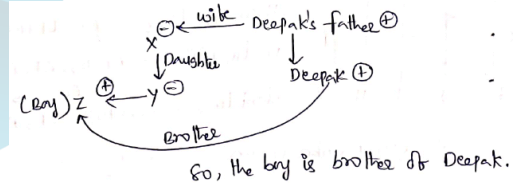 wife Deepak's father ⊕
X ⊖
Daughter
Deepak ⊕
(Boy) Z ⊕ Y ⊖
Brother
So, the boy is brother of Deepak.